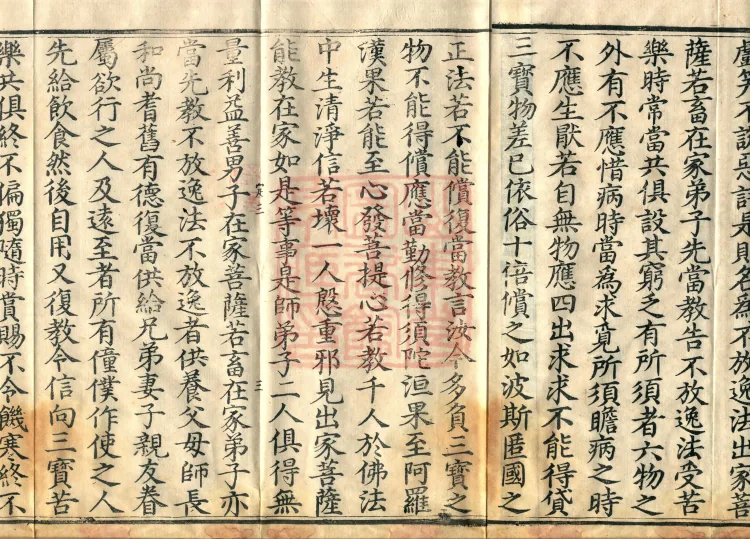 是則名爲不放逸法出家菩
薩若畜在家弟子先當教告不放逸法受苦
樂時常當共俱設其窮乏有所須者六物之
外有不應惜病時當為求覓所須瞻病之時
不應生厭若自無物應四出求求不能得貸
三寶物差已依俗十倍償之如波斯匿國之
正法若不能償復當教言汝今多負三寶之
物不能得償應當勤修得須陀洹果至阿羅
漢果若能至心發菩提心若教千人於佛法
中生清淨信若壞一人慇重邪見出家菩薩
能教在家如是等事是師弟子二人俱得無
三
量利益善男子在家菩薩若畜在家弟子亦
當先教不放逸法不放逸者供養父母師長
和尚耆舊有德復當供給兄弟妻子親友眷
屬欲行之人及遠至者所有僮僕作使之人
先給飲食然後自用又復教令信向三寶苦
樂共俱終不偏獨隨時賞賜不令饑寒終不